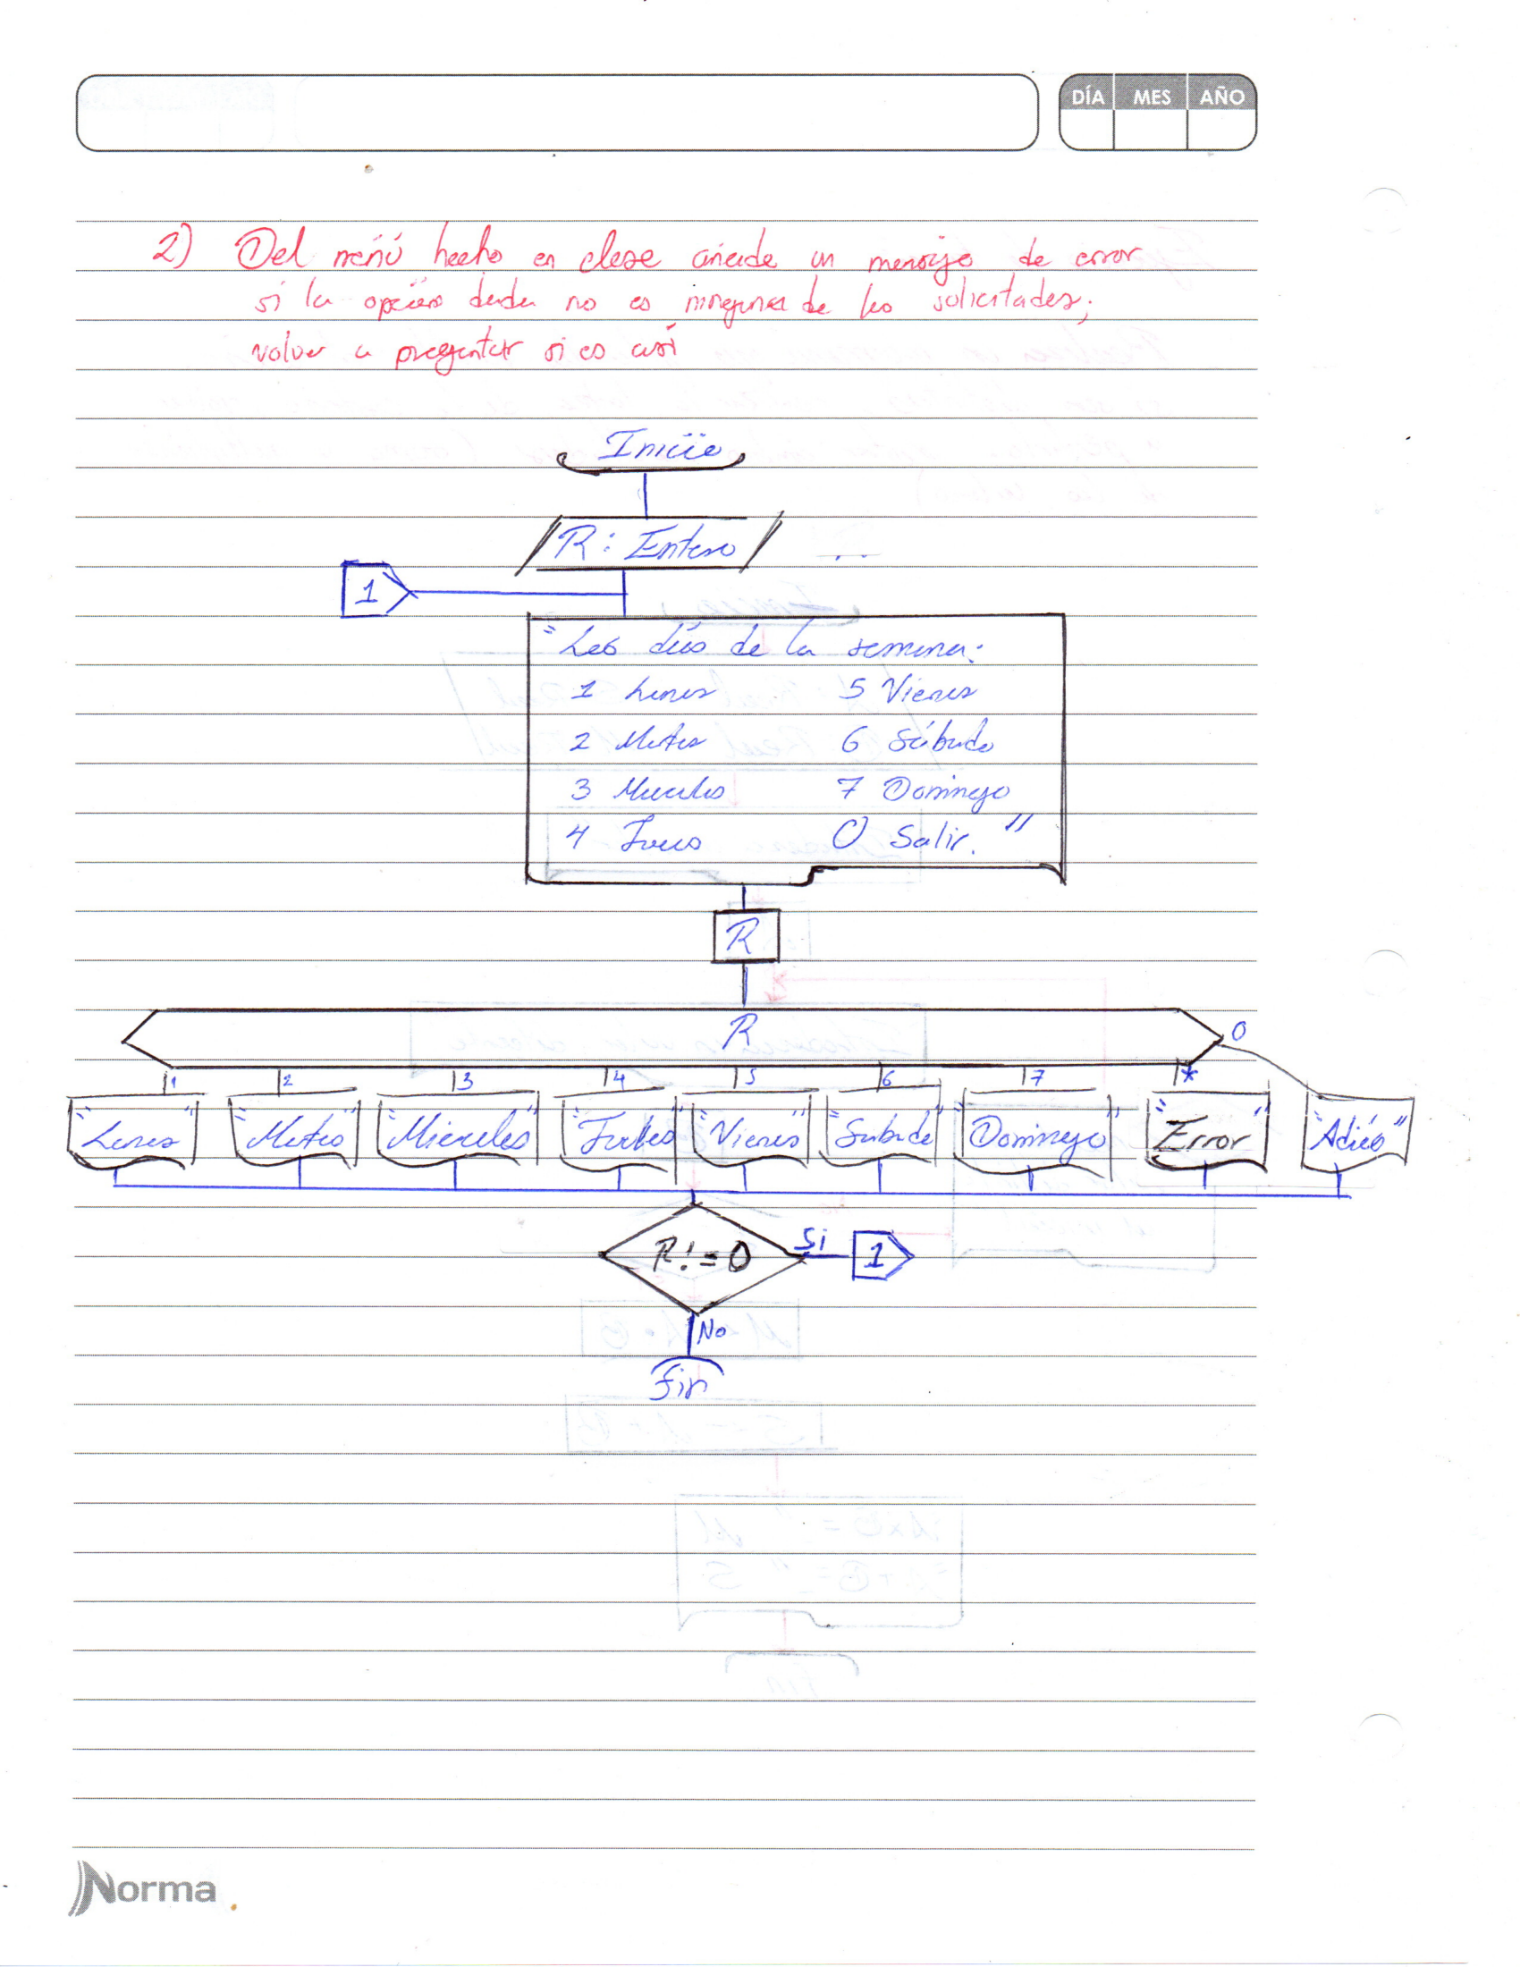 DÍA MES AÑO
2) Del menú hecho en clase añade un mensaje de error
si la opción dada no es ninguna de las solicitadas;
volver a preguntar si es así
Inicio
R: Entero
1
"Los días de la semana:
1 Lunes 5 Viernes
2 Martes 6 Sábado
3 Miercoles 7 Domingo
4 Jueves 0 Salir."
R
R 0
1 2 3 4 5 6 7 *
"Lunes" "Martes" "Miercoles" "Jueves" "Viernes" "Sabado" "Domingo" "Error" "Adiós"
R!=0 Si 1
No
Fin
Norma